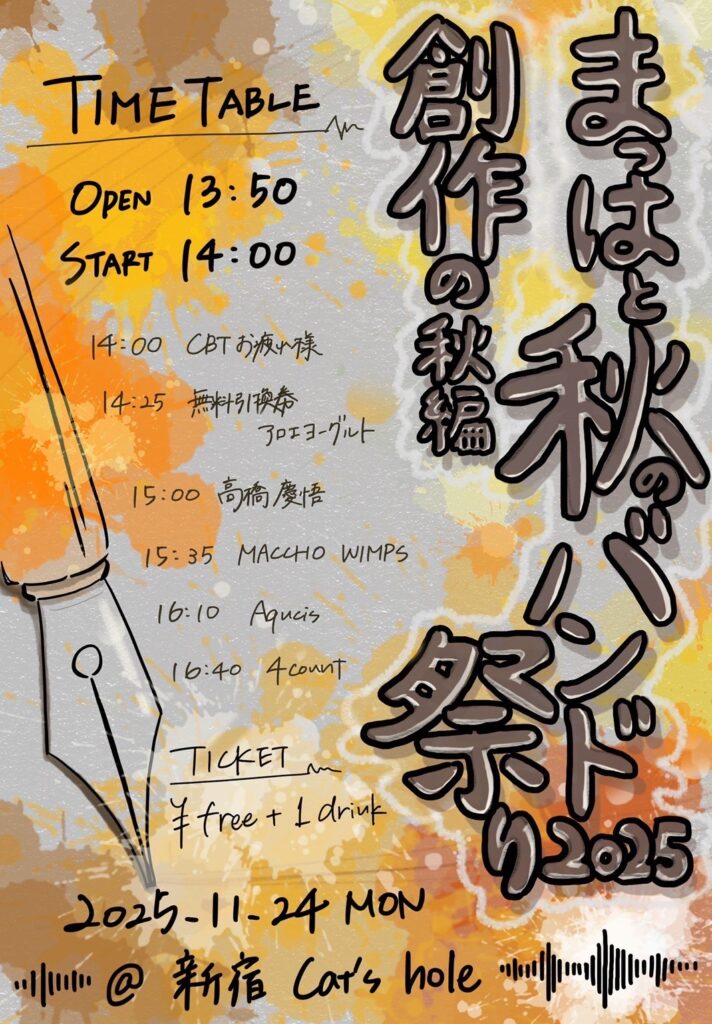 まつはと秋のバンド祭り2025
創作の秋編
TIME TABLE
OPEN 13:50
START 14:00
14:00 CBTお疲れ様
14:25 無料引換券
アロエヨーグルト
15:00 高橋慶悟
15:35 MACCHO WIMPS
16:10 Aqucis
16:40 4count
TICKET
¥free + 1 drink
2025-11-24 MON
@ 新宿 Cat's hole